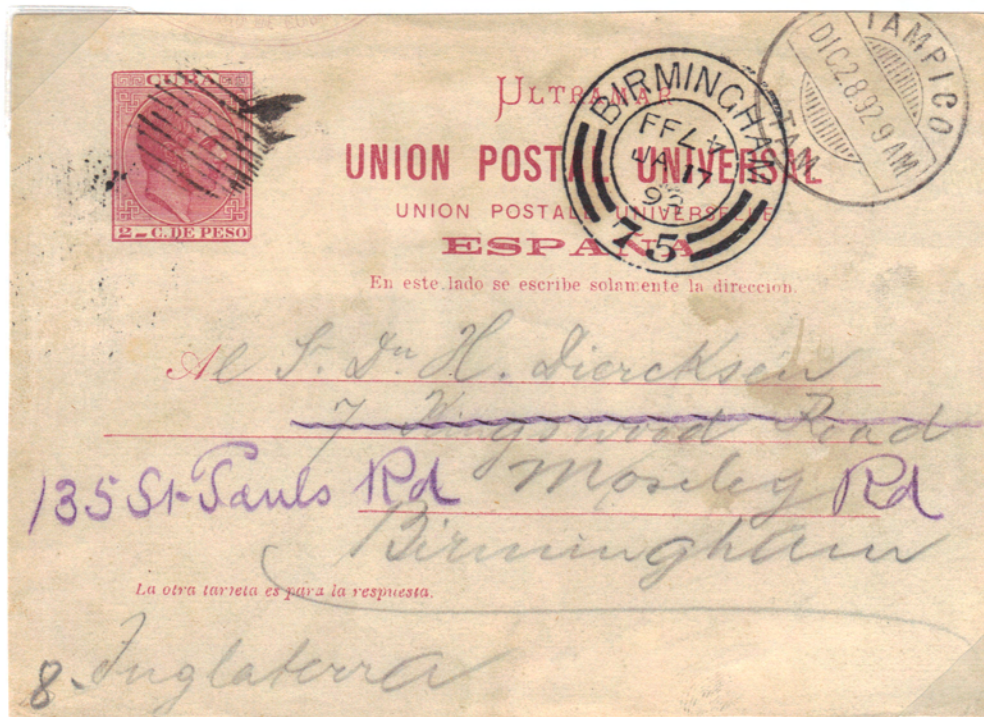 CUBA
2 C. DE PESO
ULTRAMAR
UNION POSTAL UNIVERSAL
UNION POSTALE UNIVERSELLE
ESPAÑA
En este lado se escribe solamente la dirección.
BIRMINGHAM
JA 17
75
TAMPICO
DIC. 28. 92 9 AM
TAM.
Al S. Dn H. Diercksen
7 Kingswood Road
135 St Pauls Rd Moseley Rd
Birmingham
La otra tarjeta es para la respuesta.
8. Inglaterra